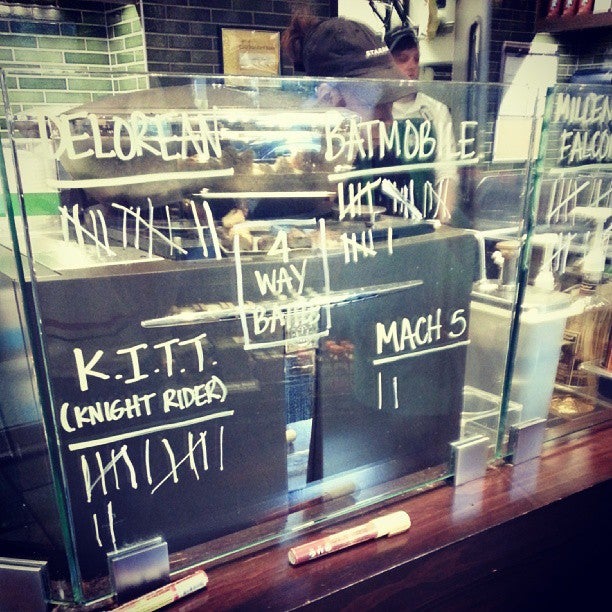 DELOREAN
BATMOBILE
MILLEN
FALCO
4
WAY
BATTLE
K.I.T.T.
(KNIGHT RIDER)
MACH 5